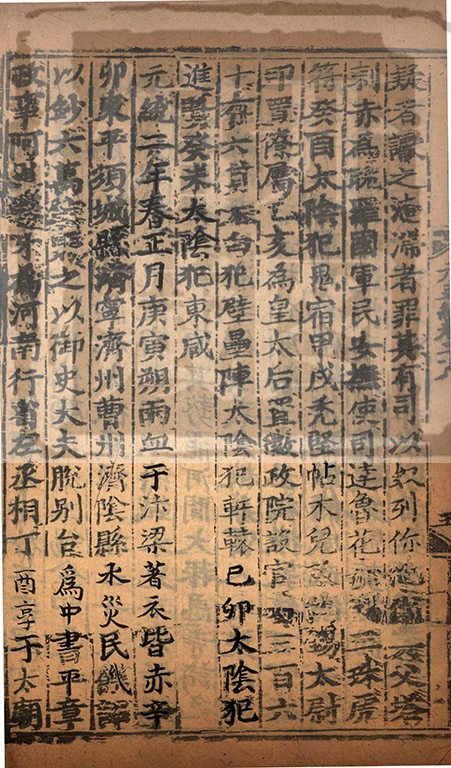 疑者讞之淹滯者罪其有司以奴列你他代其父塔
剌赤為耽羅國軍民安撫使司達魯花三珠虎
符癸酉太陰犯鬼宿甲戌禿堅帖木兒致太尉
印置僚屬乙亥為皇太后置徽政院設官三百六
十有六員犯壁壘陣太陰犯軒轅己卯太陰犯
進賢癸未太陰犯東咸
元統二年春正月庚寅朔雨血于汴梁著衣皆赤辛
卯東平須城縣濟寧濟州曹州濟陰縣水災民饑詔
以鈔六萬之以御史大夫脫別台為中書平章
政事阿為河南行省左丞相丁酉享于太廟